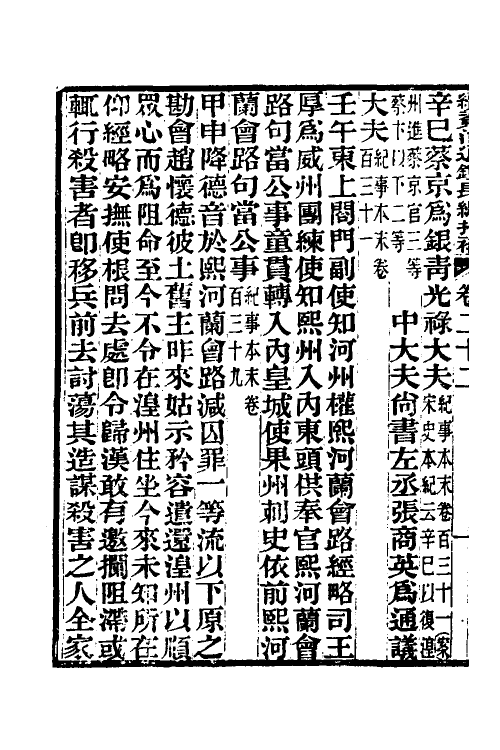 續資治通鑑長編拾補 卷二十二
辛巳蔡京爲銀靑光祿大夫紀事本末卷百三十一案宋史本紀云辛巳以復湟
州進蔡京官三等蔡卞以下二等 中大夫尙書左丞張商英爲通議
大夫紀事本末卷百三十一
壬午東上閤門副使知河州權熙河蘭會路經略司王
厚爲威州團練使知熙州入內東頭供奉官熙河蘭會
路句當公事童貫轉入內皇城使果州刺史依前熙河
蘭會路句當公事紀事本末卷百三十九
甲申降德音於熙河蘭會路減囚罪一等流以下原之
勘會趙懷德彼土舊主昨來姑示矜容遣還湟州以順
眾心而爲阻命至今不令在湟州住坐今來未知所在
仰經略安撫使根問去處卽令歸漢敢有邀攔阻滯或
輒行殺害者卽移兵前去討蕩其造謀殺害之人全家